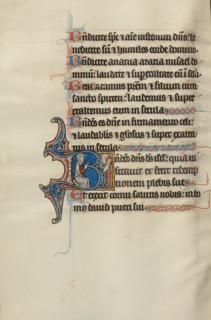 Benedicite sps et aie iustorum dno be
nedicite sci et humiles corde domino.
Benedicite anania azaria misael do
minum: laudate et superexaltate eum i scła.
Benedicamus prem et filium cum
sancto spiritu: laudemus et super
exaltemus eum in secula
Bndcs es dne in firmamento celi:
et laudabilis et gliosus et super exalta
tus in secula
Bndcs dns ds isrł. quia ui
sitauit et fecit redemp
tionem plebis sue
Et erexit cornu salutis nobis: in do
mo dauid pueri sui